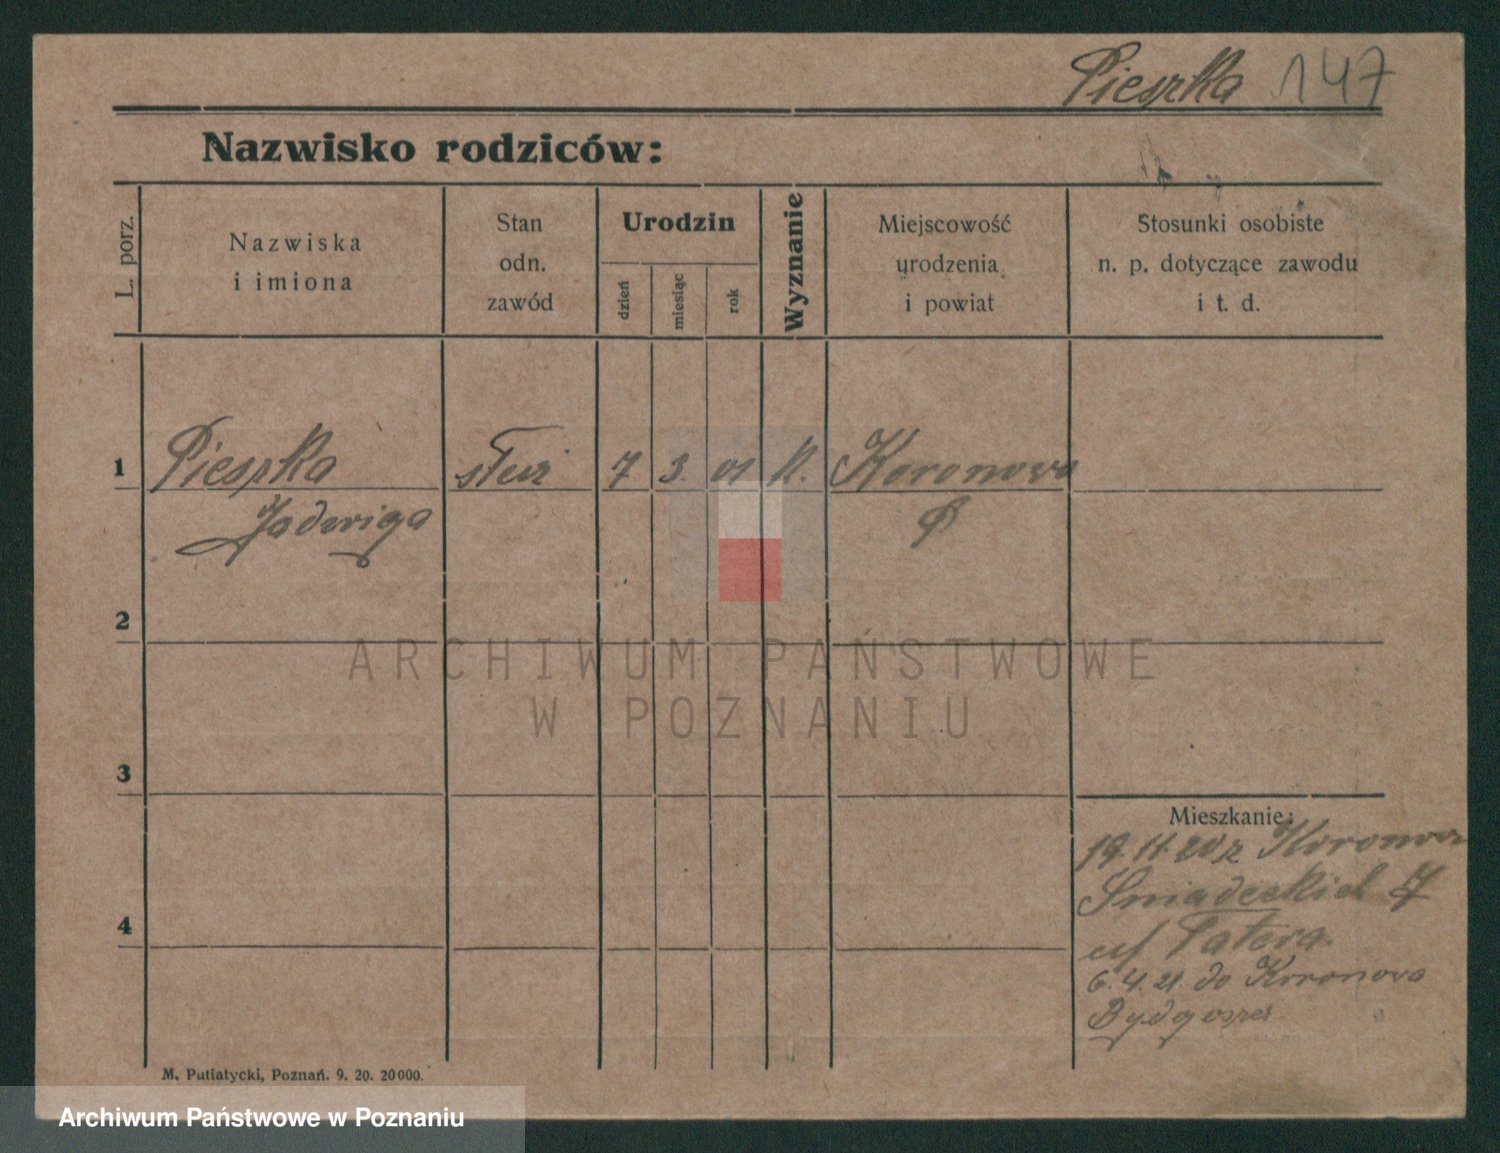 Pieszka 147
Nazwisko rodziców:
L. porz.
Nazwiska
i imiona
Stan
odn.
zawód
Urodzin
dzień
miesiąc
rok
Wyznanie
Miejscowość
urodzenia
i powiat
Stosunki osobiste
n. p. dotyczące zawodu
i t. d.
1 Pieszka służ 7 3. 01 K. Koronowo
Jadwiga
2
3
4
Mieszkanie:
19.11.20 z Koronowa
Śniadeckich
u/ Patera.
6.4.21. do Koronowa
Bydgoszcz
M. Putiatycki, Poznań. 9. 20. 20000.
ARCHIWUM PAŃSTWOWE
W POZNANIU
Archiwum Państwowe w Poznaniu